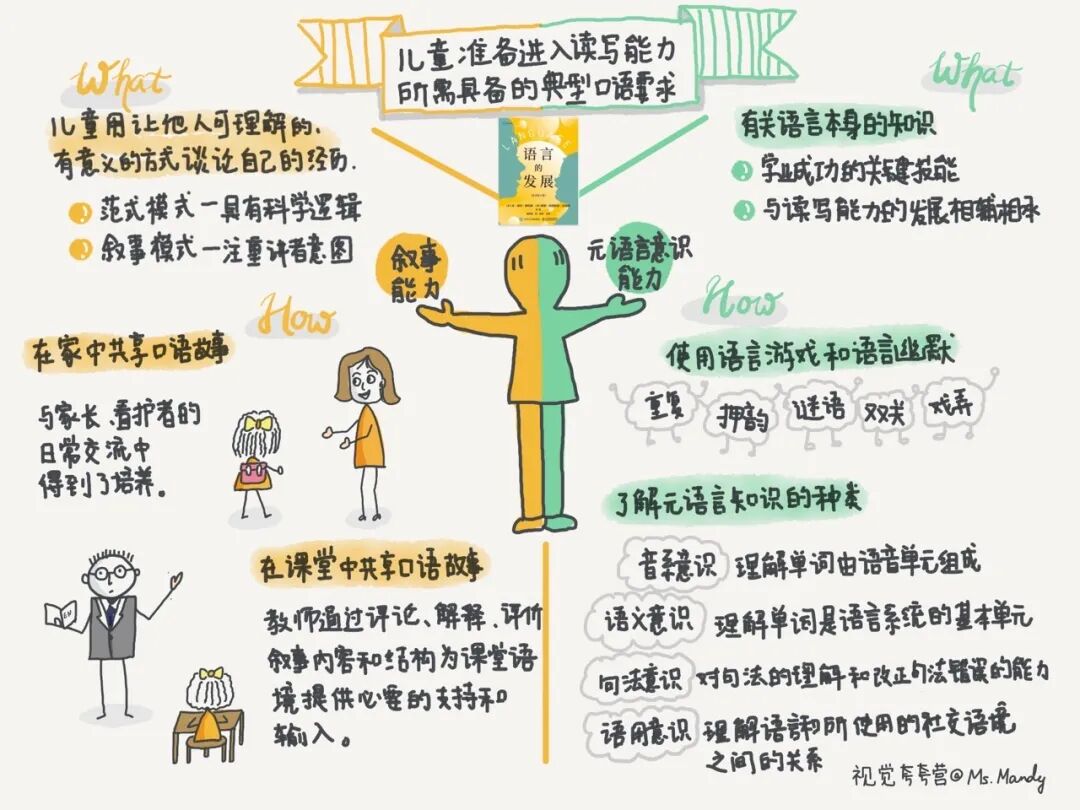 儿童准备进入读写能力
所需具备的典型口语要求
LANGUAGE
语言
的
发展
What
儿童用让他人可理解的、
有意义的方式谈论自己的经历.
范式模式—具有科学逻辑
叙事模式—注重讲者意图
叙事
能力
How
在家中共享口语故事
与家长、看护者的
日常交流中
得到了培养。
在课堂中共享口语故事
教师通过评论、解释、评价
叙事内容和结构为课堂语
境提供必要的支持和
输入。
What
有关语言本身的知识
学业成功的关键技能
与读写能力的发展相辅相承
元语言意识
能力
How
使用语言游戏和语言幽默
重复
押韵
谜语
双关
戏弄
了解元语言知识的种类
音系意识 理解单词由语音单元组成
语义意识 理解单词是语言系统的基本单元
句法意识 对句法的理解和改正句法错误的能力
语用意识 理解语言和所使用的社交语境
之间的关系
视觉夸夸营@Ms.Mandy